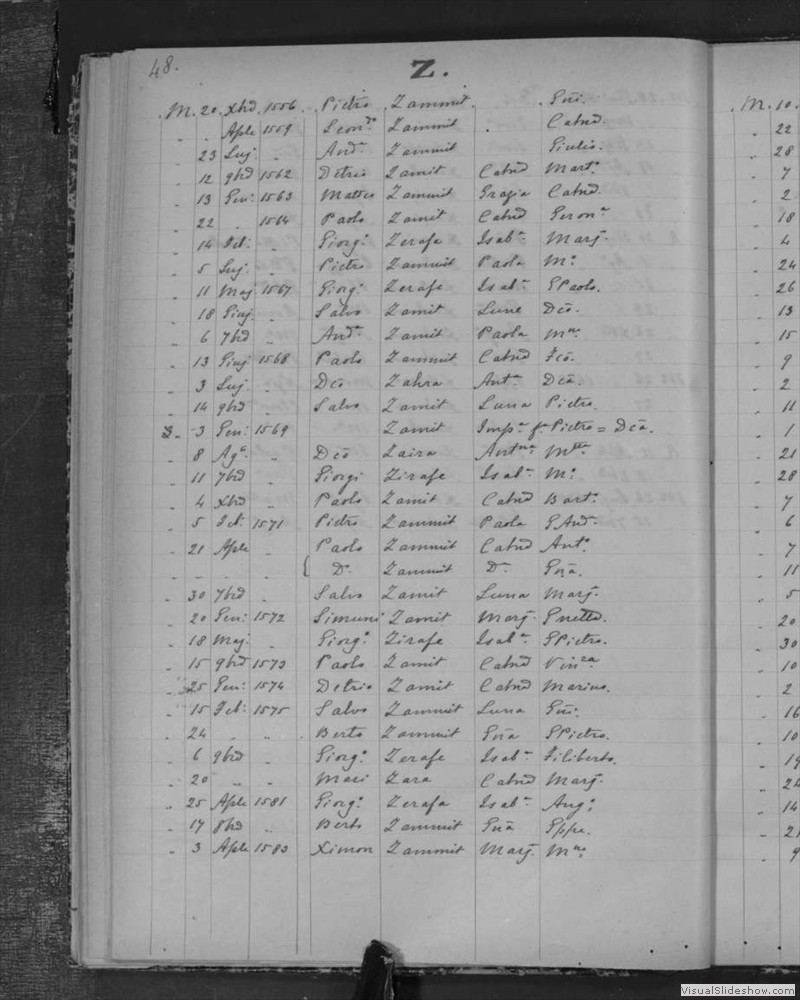 48.
Z.
M. 20 Xbd 1556. Pietro Zammit Gni. M. 10.
" " Aple 1559 Leond.o Zammit . Catnd. " 22
" 23 Lug. " And.a Zammit Giulio. " 28
" 12 9bd 1562 Detrio Zamit Catnd Mart.a " 7
" 13 Gen: 1563 Matteo Zammit Grazia Catnd. " 2
" 22 " 1564 Paolo Zamit Catnd Geron.a " 18
" 14 Feb: " Giorg.o Zerafe Isab.a Marg. " 4
" 5 Lug. " Pietro Zammit Paola M.a " 24
" 11 Mag. 1567 Giorg.o Zerafe Isab.a GPaolo. " 26
" 18 Giug. " Salvo Zamit Lune Dco. " 13
" 6 7bd " And.a Zamit Paola M.na " 15
" 13 Giug 1568 Paolo Zammit Catnd Fco. " 9
" 3 Lug. " Dco Zahra Ant.a Dca. " 2
" 14 9bd " Salvo Zamit Luna Pietro. " 11
3 Gen: 1569 Zamit Imp.a f.a Pietro = Dca. " 1
" 8 Ag.o " Dco Zaira Ant.na " 21
" 11 7bd " Giorgi Zirafe Isab.a M.a " 28
" 4 Xbd " Paolo Zamit Catnd Bart.o " 7
" 5 Feb: 1571 Pietro Zammit Paola GAnd.a " 6
" 21 Aple " Paolo Zammit Catnd Ant.o " 7
" " " " { D.o Zammit D.a Gna. " 11
" 30 7bd " Salvo Zamit Luna Marg. " 5
" 20 Gen: 1572 Simuni Zamit Marg. Gnetta. " 20
" 18 Mag. " Giorg.o Zirafe Isab.a GPietro. " 30
" 15 9bd 1573 Paolo Zamit Catnd Vinza " 10
" 25 Gen: 1574 Detrio Zamit Catnd Marius. " 2
" 15 Feb: 1575 Salvo Zammit Luna Gni. " 16
" 24 " " Berto Zammit Gna GPietro. " 10
" 6 9bd " Giorg.o Zerafe Isab.a Filiberto. " 19
" 20 " " Mari Zara Catnd Marg. " 24
" 25 Aple 1581 Giorg.o Zerafa Isab.a Ang.o " 14
" 17 8bd " Berto Zammit Gna Gppe. " 21
" 3 Aple 1583 Ximon Zammit Marg. M.na " 9
VisualSlideshow.com